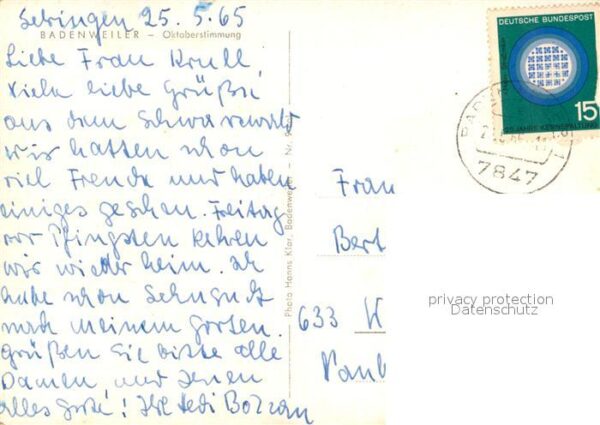 Sehringen 25. 5. 65
BADENWEILER – Oktoberstimmung
Liebe Frau Krull,
Viele liebe Grüße
aus dem Schwarzwald
wir hatten schon
viel Freude und haben
einiges gesehen. Freitag
vor Pfingsten kehren
wir wieder heim. Ich
habe schon Sehnsucht
nach meinem Garten.
Grüßen Sie bitte alle
Damen und Ihnen
alles Gute! Ihre Hedi
Photo Hanns Klar, Badenweiler – Nr.
DEUTSCHE BUNDESPOST
15
25 JAHRE KERNSPALTUNG
7847
Frau
Bert
633 K
Paul
privacy protection
Datenschutz